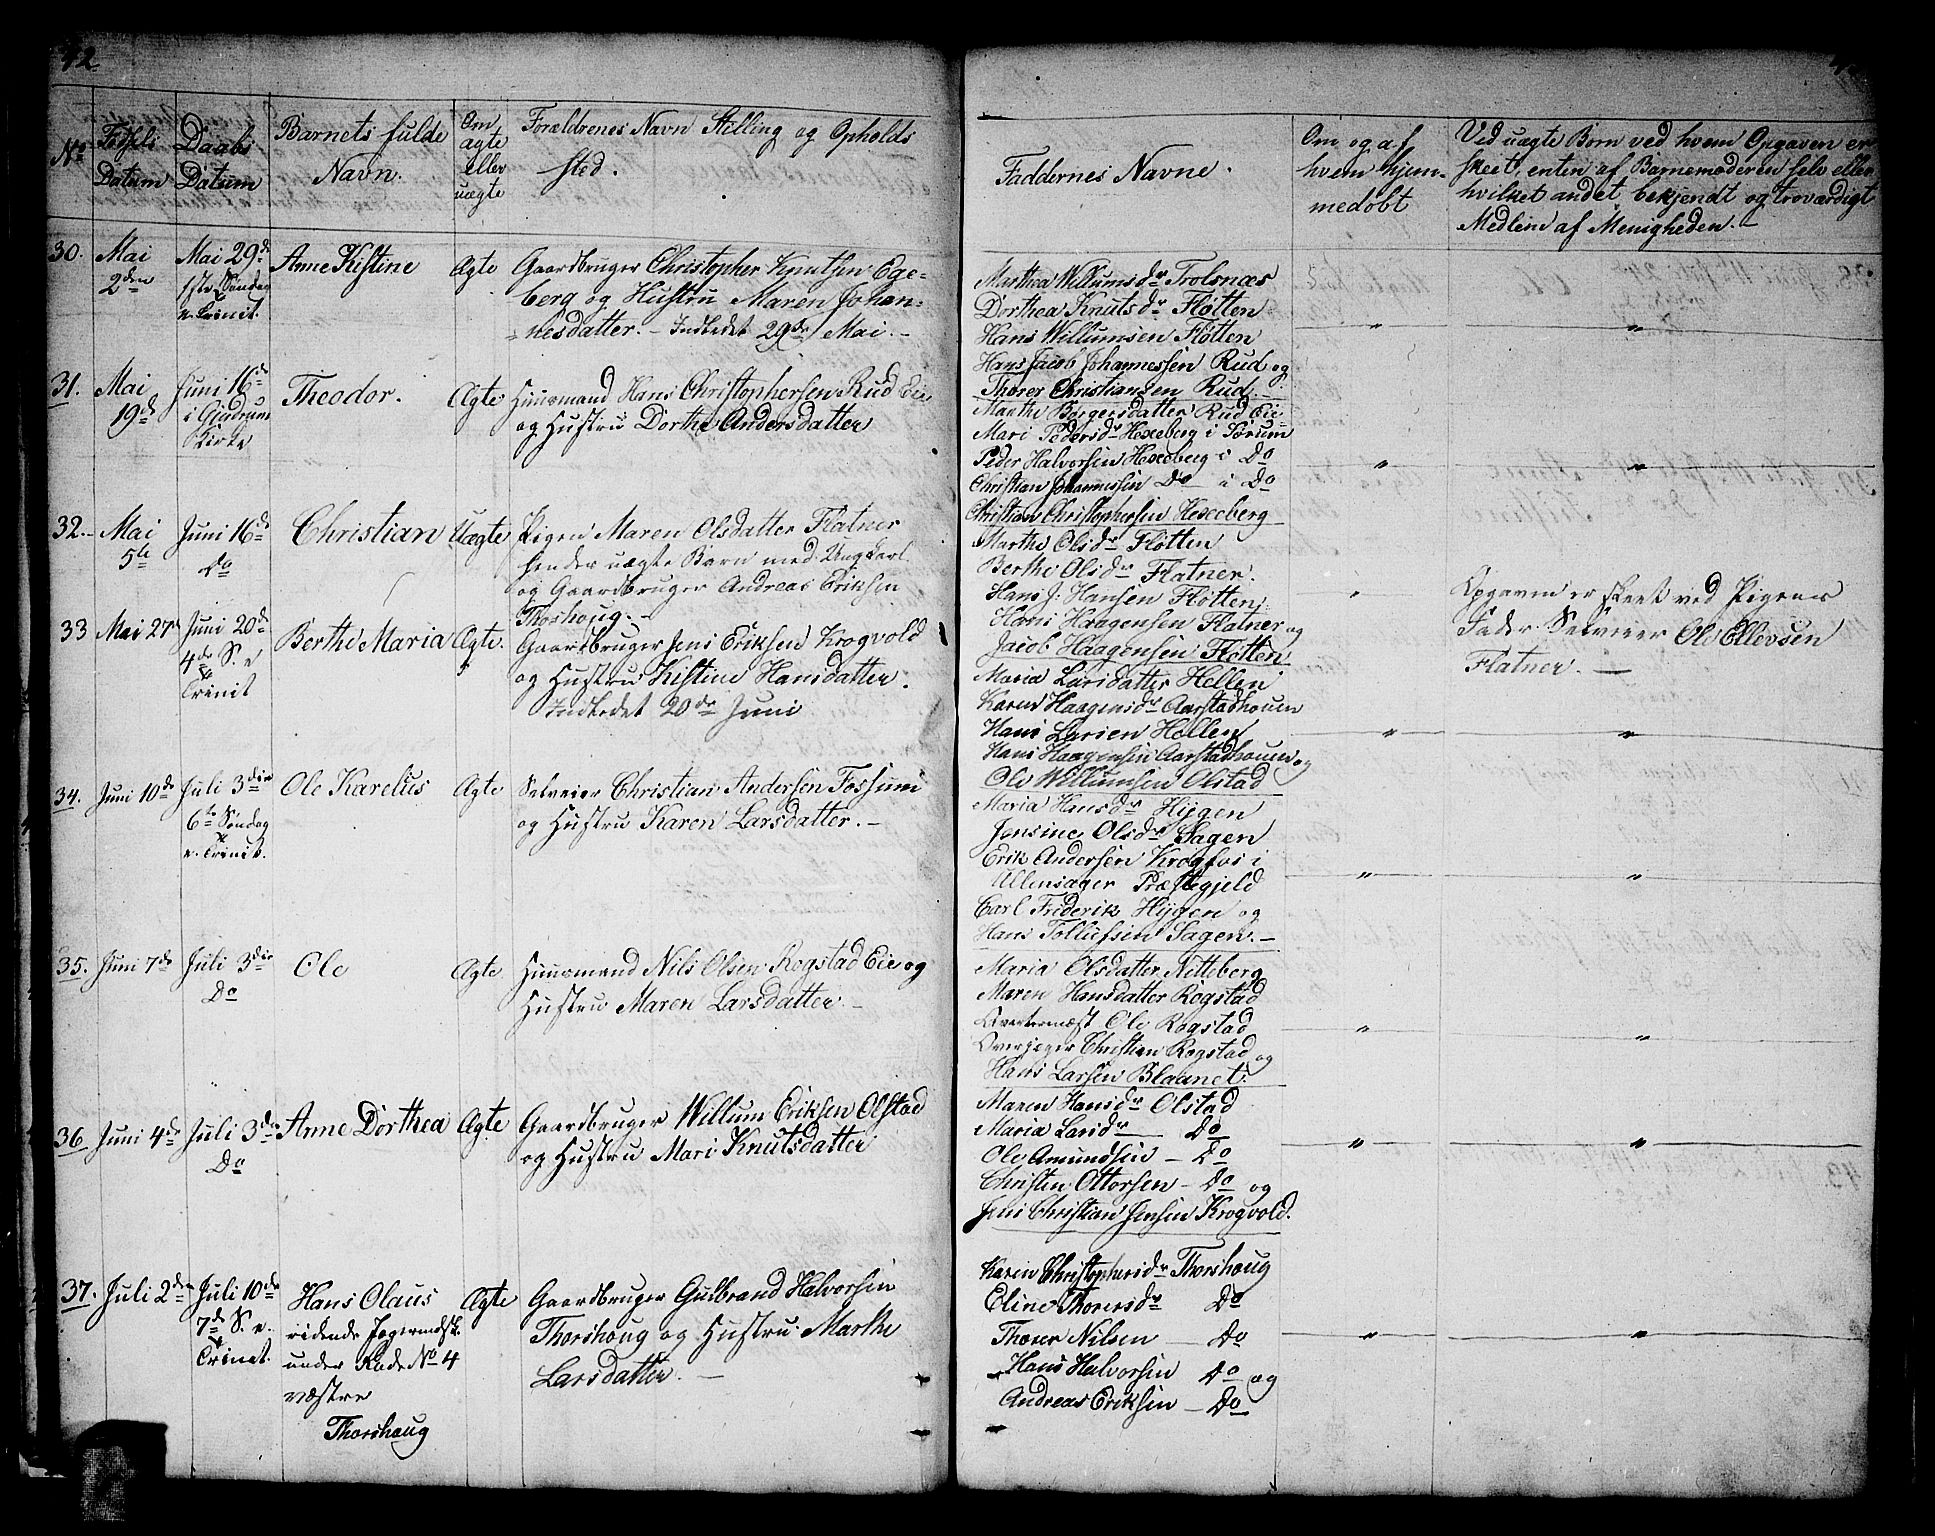 42
No
Fødsels Datum
Daabs Datum
Barnets fulde Navn.
Om ægte eller uægte
Forældrenes Navn Stilling og Opholds sted.
Faddernes Navne.
Om og af hvem hjem- medøbt
Ved uægte Børn ved hvem Opgaven er
skeet, enten af Barnemoderen selv eller
hvilket andet bekjendt og troværdigt
Medlem af Menigheden.—
30.
Mai
2den
Mai 29de
1ste Søndag
e. Trinit.
Anne Kistine
Ægte
Gaardbruger Christopher Knutsen Ege-
berg og Hustru Maren Johan-
nesdatter.— Indledet 29de Mai.—
Marthea Willumsdr Trolsnæs
Dorthea Knutsdr Fløtten
Hans Willumsen Fløtten
Hans Jacob Johannessen Rud og
Thorer Christiansen Rud.—
"
"
31.
Mai
19de
Juni 16de
i Gjedrum
Kirke
Theodor.
Ægte
Huusmand Hans Christophersen Rud Eie
og Hustru Dorthe Andersdatter
Marthe Børgersdatter Rud Eie
Mari Pedersdr Hexeberg i Sørum
Peder Halvorsen Hexeberg i Do
Christian Johannessen Do i Do
Christian Christophersen Hexeberg
"
"
32.—
Mai
5te
Juni 16de
Do
Christian
Uægte
Pigen Maren Olsdatter Flatner
hendes uægte Barn med Ungkarl
og Gaardbruger Andreas Eriksen
Thoshoug.—
Marthe Olsdr Fløtten
Berthe Olsdr Flatner.
Hans J. Hansen Fløtten
Hans Haagensen Flatner og
Jacob Haagensen Fløtten
"
Opgaven er skeet ved Pigens
Fader Selveier Ole Ellevsen
Flatner.—
33
Mai 27de
Juni 20de
4de S. e
Trinit
Berthe Maria
Ægte.
Gaardbruger Jens Eriksen Krogvold
og Hustru Kistine Hansdatter.
Indledet 20de Juni
Maria Larsdatter Hellen
Karen Haagensdr Aarstadhouen
Hans Larsen Hellen
Hans Haagensen Aarstadhouen og
Ole Willumsen Olstad
"
"
34.
Juni 10de
Juli 3die
6te Søndag
e. Trinit.
Ole Karelius
Ægte
Selveier Christian Andersen Fossum
og Hustru Karen Larsdatter.—
Maria Hansdr Hygen
Jensine Olsdr Sagen
Erik Andersen Krogfos i
Ullensager Præstegjeld
Carl Friderik Hygen og
Hans Tollufsen Sagen.—
"
"
35.
Juni 7de
Juli 3die
Do
Ole
Ægte
Huusmand Nils Olsen Rogstad Eie og
Hustru Maren Larsdatter.—
Maria Olsdatter Nitteberg
Maren Hansdatter Rogstad
Ole Rogstad
Overjæger Christian Rogstad og
Hans Larsen Blaanet.
"
"
36.
Juni 4de
Juli 3die
Do
Anne Dorthea
Ægte
Gaardbruger Willum Eriksen Olstad
og Hustru Mari Knutsdatter
Maren Hansdr Olstad
Maria Larsdr — Do
Ole Amundsen — Do
Christen Ottersen — Do og
Jens Christian Jensen Krogvold.
"
"
37.
Juli 2den
Juli 10de
7de S. e.
Trinit.
Hans Olaus
ridende Jægermdsk.
under Rode No 4
væstre
Thorshaug
Ægte
Gaardbruger Gulbrand Halvorsen
Thorshoug og Hustru Marthe
Larsdatter.—
Karen Christophersdr Thorshoug
Eline Thorersdr Do
Thorer Nilsen — Do
Hans Halvorsen Do og
Andreas Eriksen — Do
"
"